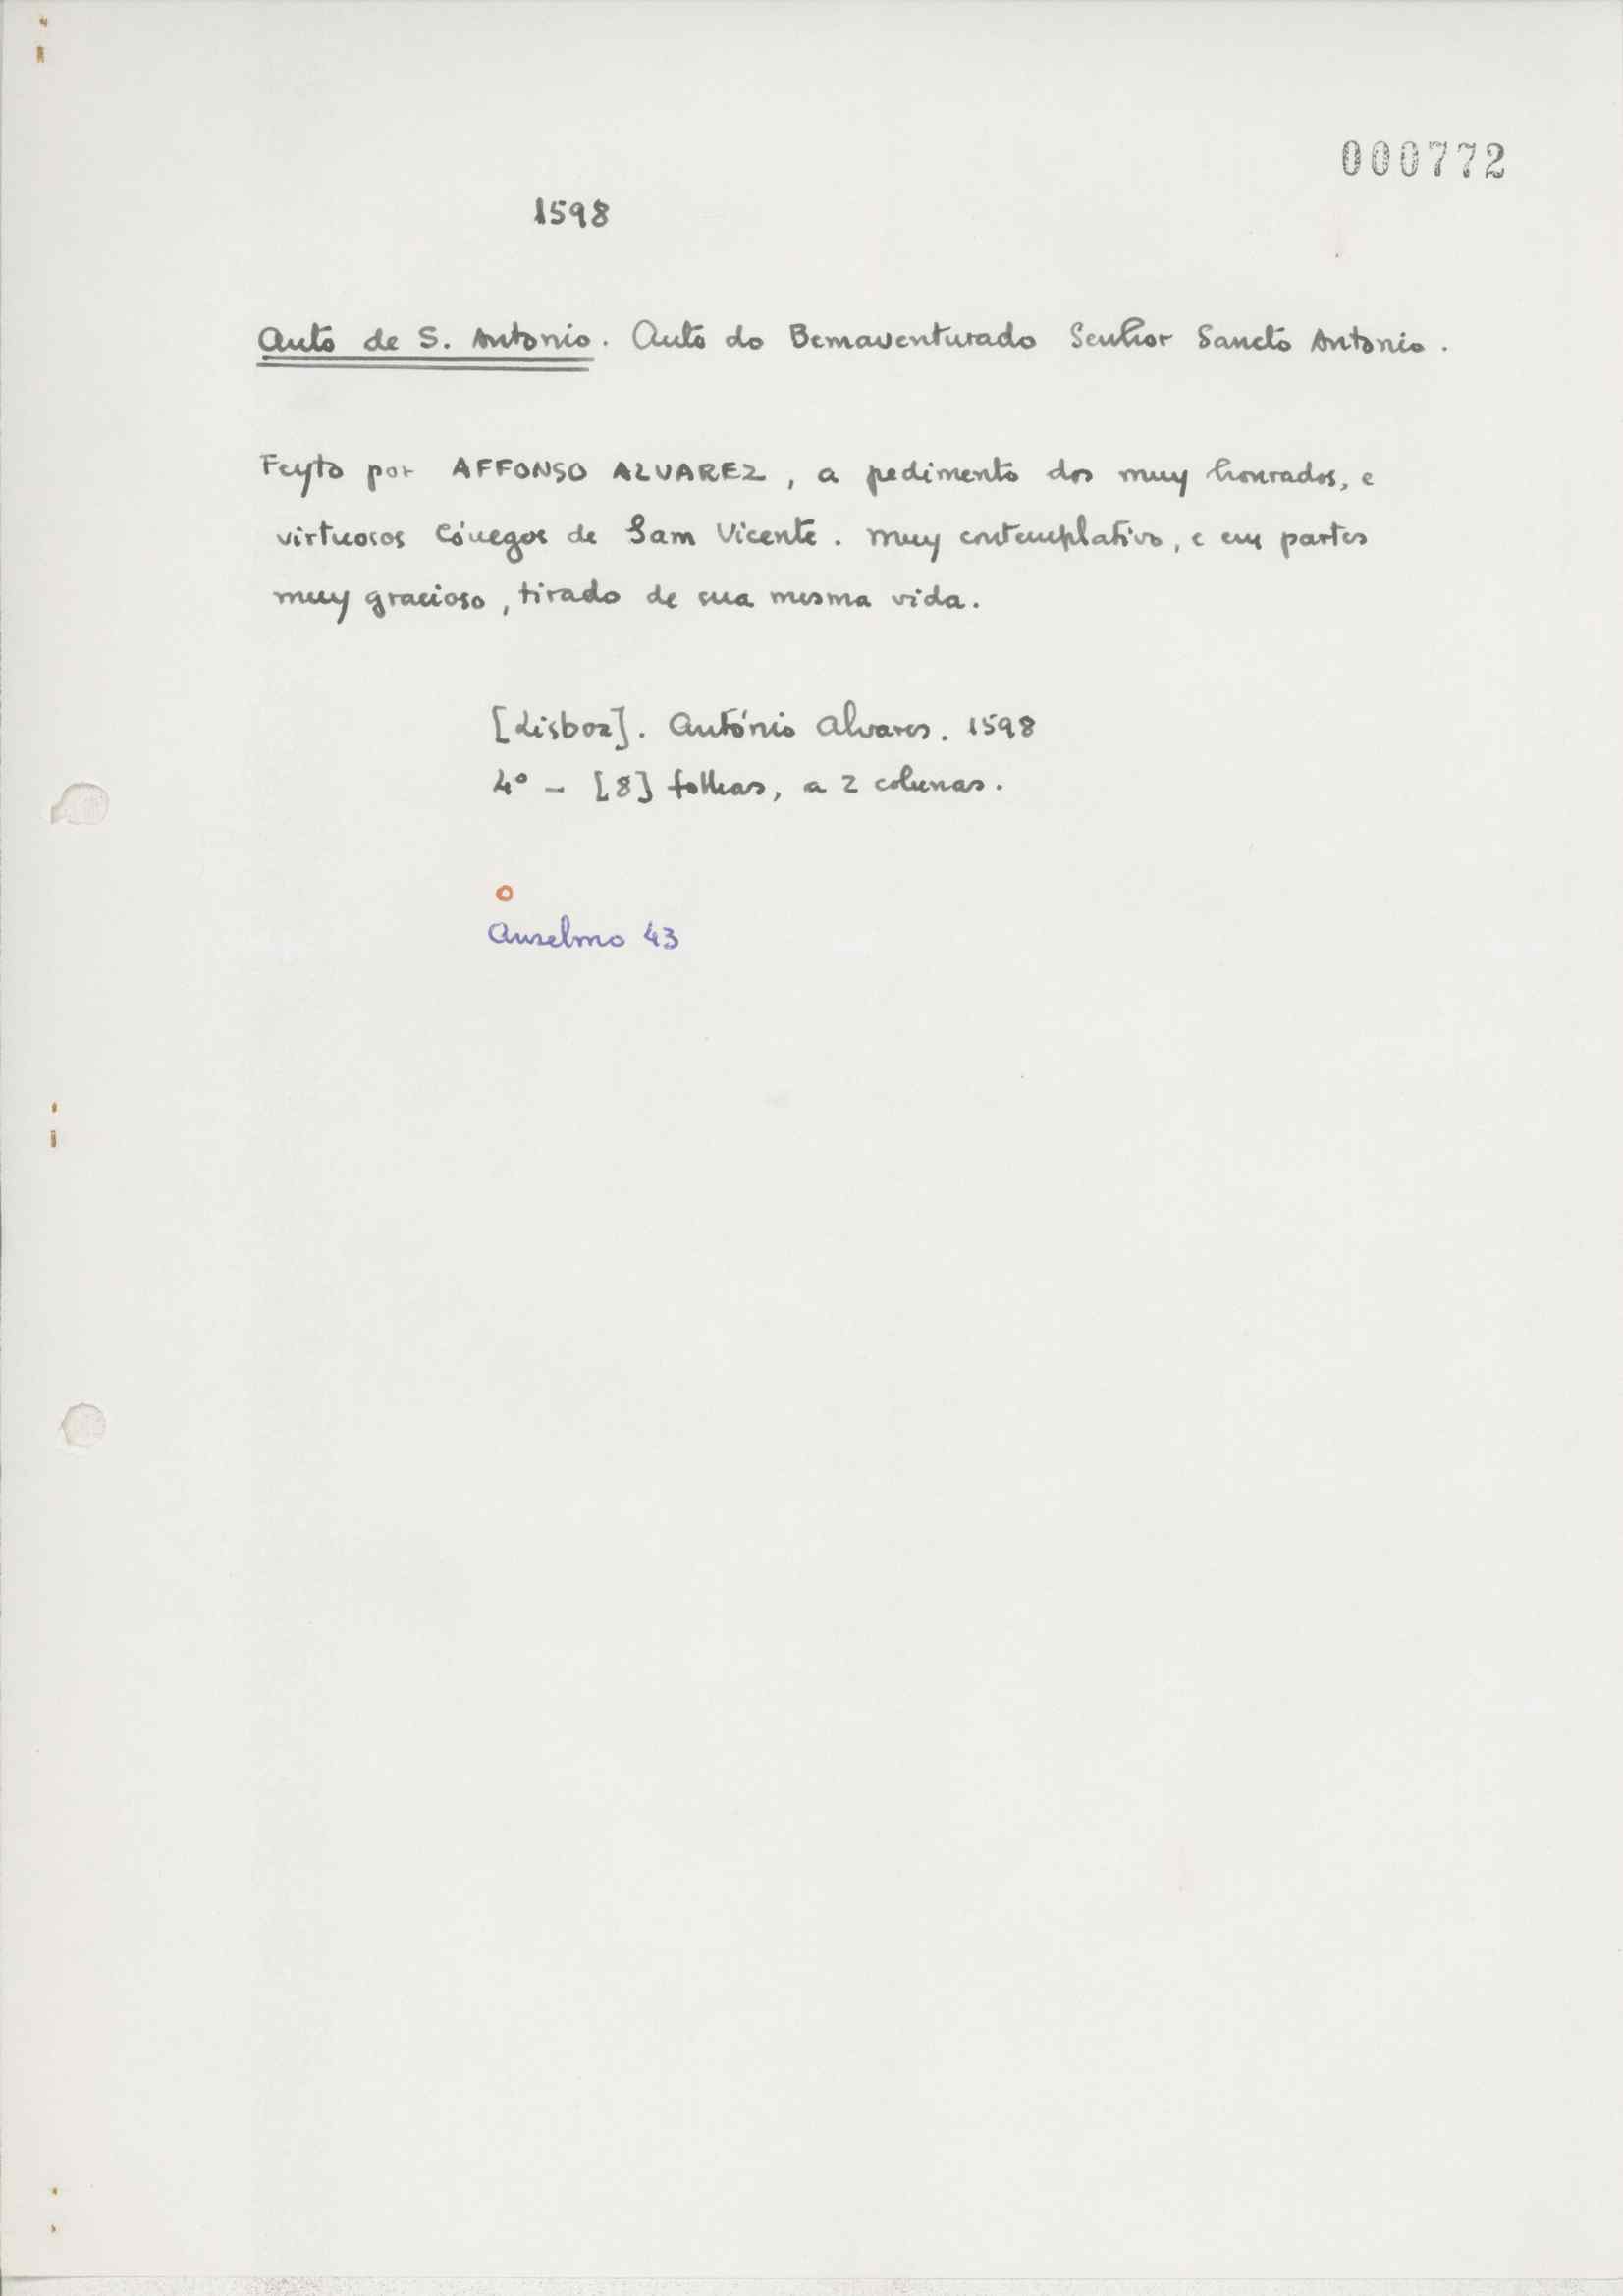 000772
1598
Auto de S. Antonio. Auto do Bemaventurado Senhor Sancto Antonio.
Feyto por AFFONSO ALVAREZ, a pedimento dos muy honrados, e
virtuosos Cónegos de Sam Vicente. Muy contemplativo, e em partes
muy gracioso, tirado de sua mesma vida.
[Lisboa]. António Alvares. 1598
4º - [8] folhas, a 2 colunas.
o
Anselmo 43